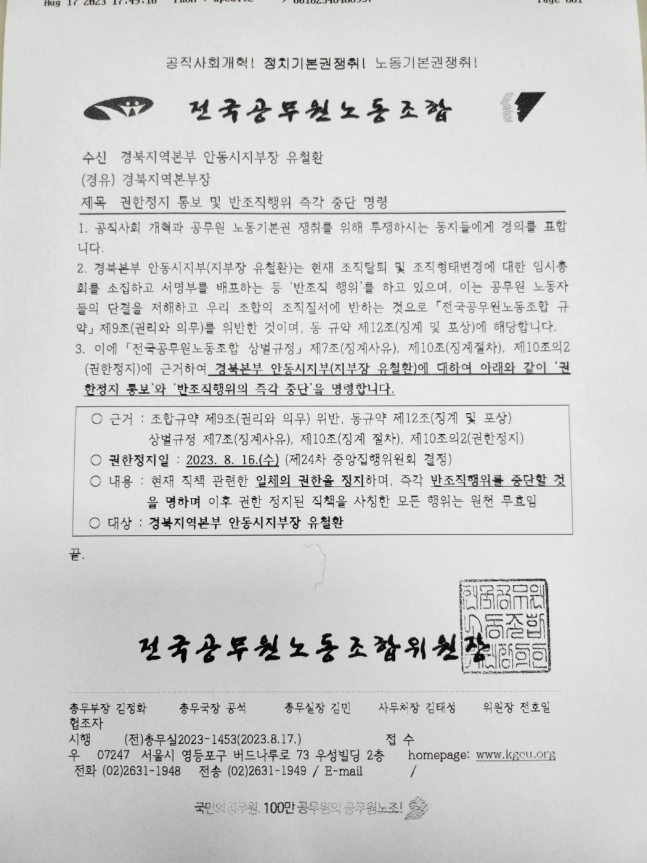 Aug 17 2023 17:49:16
Page 001
공직사회개혁! 정치기본권쟁취! 노동기본권쟁취!
전국공무원노동조합
수신 경북지역본부 안동시지부장 유철환
(경유) 경북지역본부장
제목 권한정지 통보 및 반조직행위 즉각 중단 명령
1. 공직사회 개혁과 공무원 노동기본권 쟁취를 위해 투쟁하시는 동지들에게 경의를 표합
니다.
2. 경북본부 안동시지부(지부장 유철환)는 현재 조직탈퇴 및 조직형태변경에 대한 임시총
회를 소집하고 서명부를 배포하는 등 '반조직 행위'를 하고 있으며, 이는 공무원 노동자
들의 단결을 저해하고 우리 조합의 조직질서에 반하는 것으로 「전국공무원노동조합 규
약」제9조(권리와 의무)를 위반한 것이며, 동 규약 제12조(징계 및 포상)에 해당합니다.
3. 이에 「전국공무원노동조합 상벌규정」 제7조(징계사유), 제10조(징계절차), 제10조의2
(권한정지)에 근거하여 경북본부 안동시지부(지부장 유철환)에 대하여 아래와 같이 '권
한정지 통보'와 '반조직행위의 즉각 중단'을 명령합니다.
○ 근거 : 조합규약 제9조(권리와 의무) 위반, 동규약 제12조(징계 및 포상)
상벌규정 제7조(징계사유), 제10조(징계 절차), 제10조의2(권한정지)
○ 권한정지일 : 2023. 8. 16.(수) (제24차 중앙집행위원회 결정)
○ 내용 : 현재 직책 관련한 일체의 권한을 정지하며, 즉각 반조직행위를 중단할 것
을 명하며 이후 권한 정지된 직책을 사칭한 모든 행위는 원천 무효임
○ 대상 : 경북지역본부 안동시지부장 유철환
끝.
전국공무원노동조합위원장
총무부장 김정화 총무국장 공석 총무실장 김민 사무처장 김태성 위원장 전호일
협조자
시행 (전)총무실2023-1453(2023.8.17.) 접수
우 07247 서울시 영등포구 버드나루로 73 우성빌딩 2층 homepage: www.kgeu.org
전화 (02)2631-1948 전송 (02)2631-1949 / E-mail /
국민의 공무원, 100만 공무원의 공무원노조!